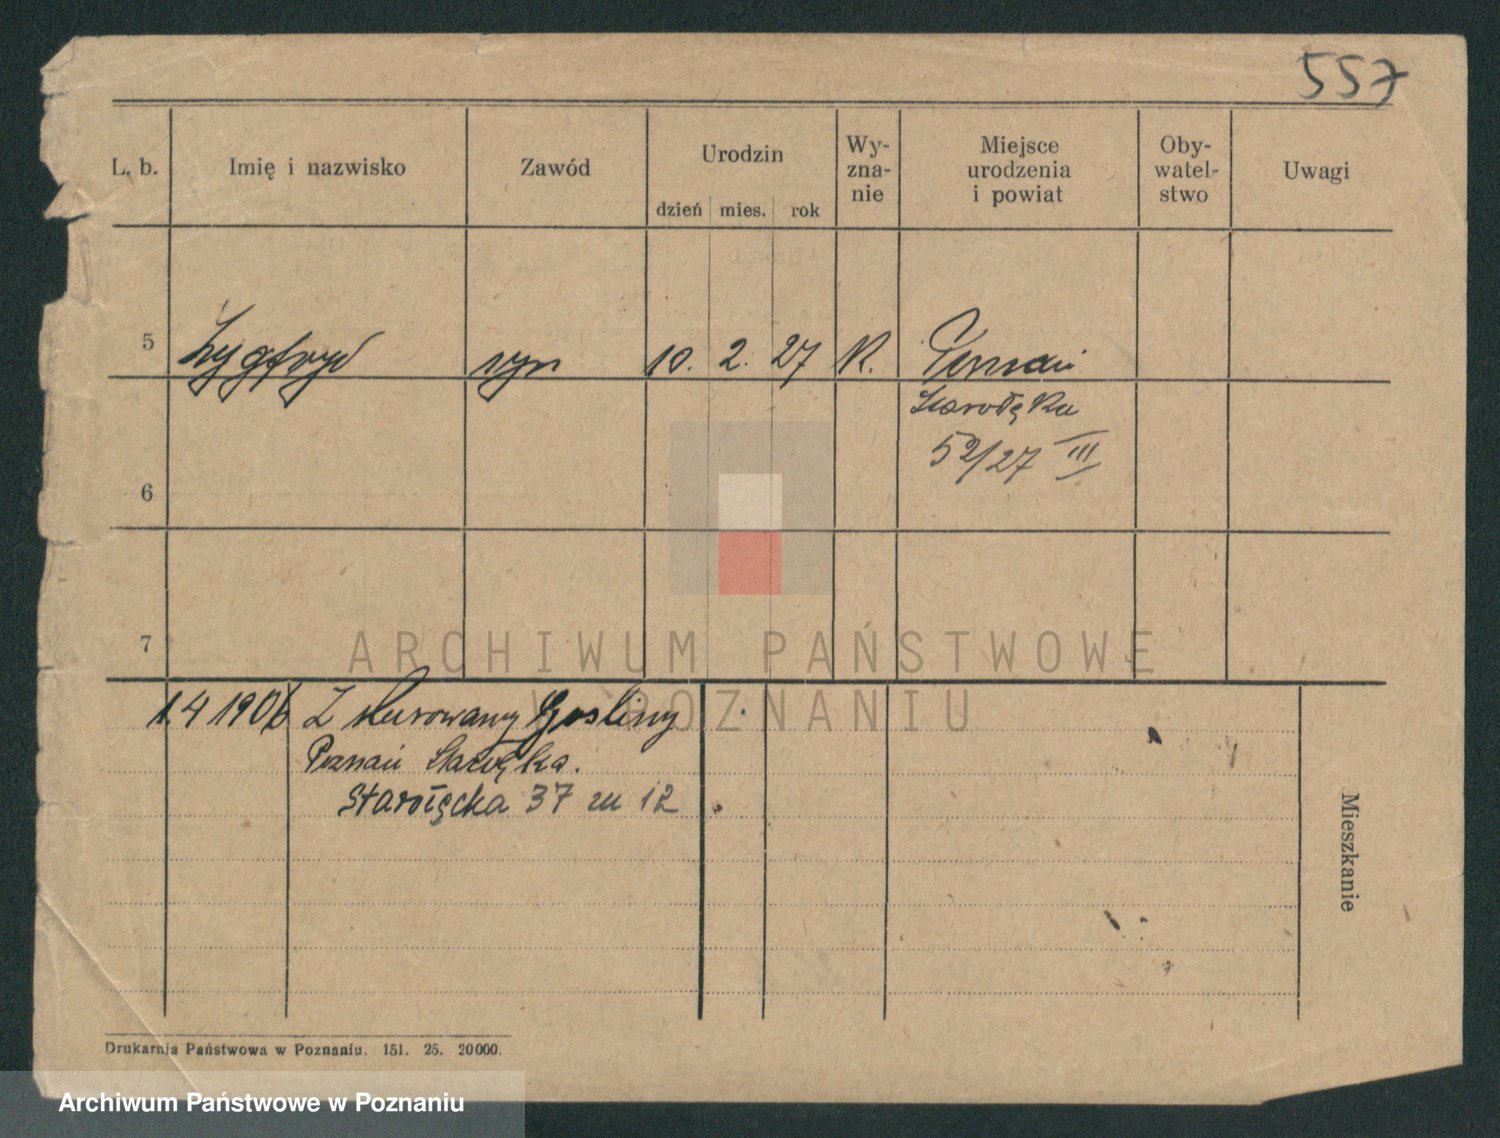 557
L. b. Imię i nazwisko Zawód Urodzin dzień mies. rok Wy-zna-nie Miejsce urodzenia i powiat Oby-watel-stwo Uwagi
5 Zygfryd syn 10. 2. 27 K. Poznań
Starołęka
52/27 III
6
7
ARCHIWUM PAŃSTWOWE
W POZNANIU
1.4 1906 Z Murowany Gosliny
Poznań Starołęka.
Starołęcka 37 m 12
Mieszkanie
Drukarnia Państwowa w Poznaniu. 151. 25. 20000.
Archiwum Państwowe w Poznaniu